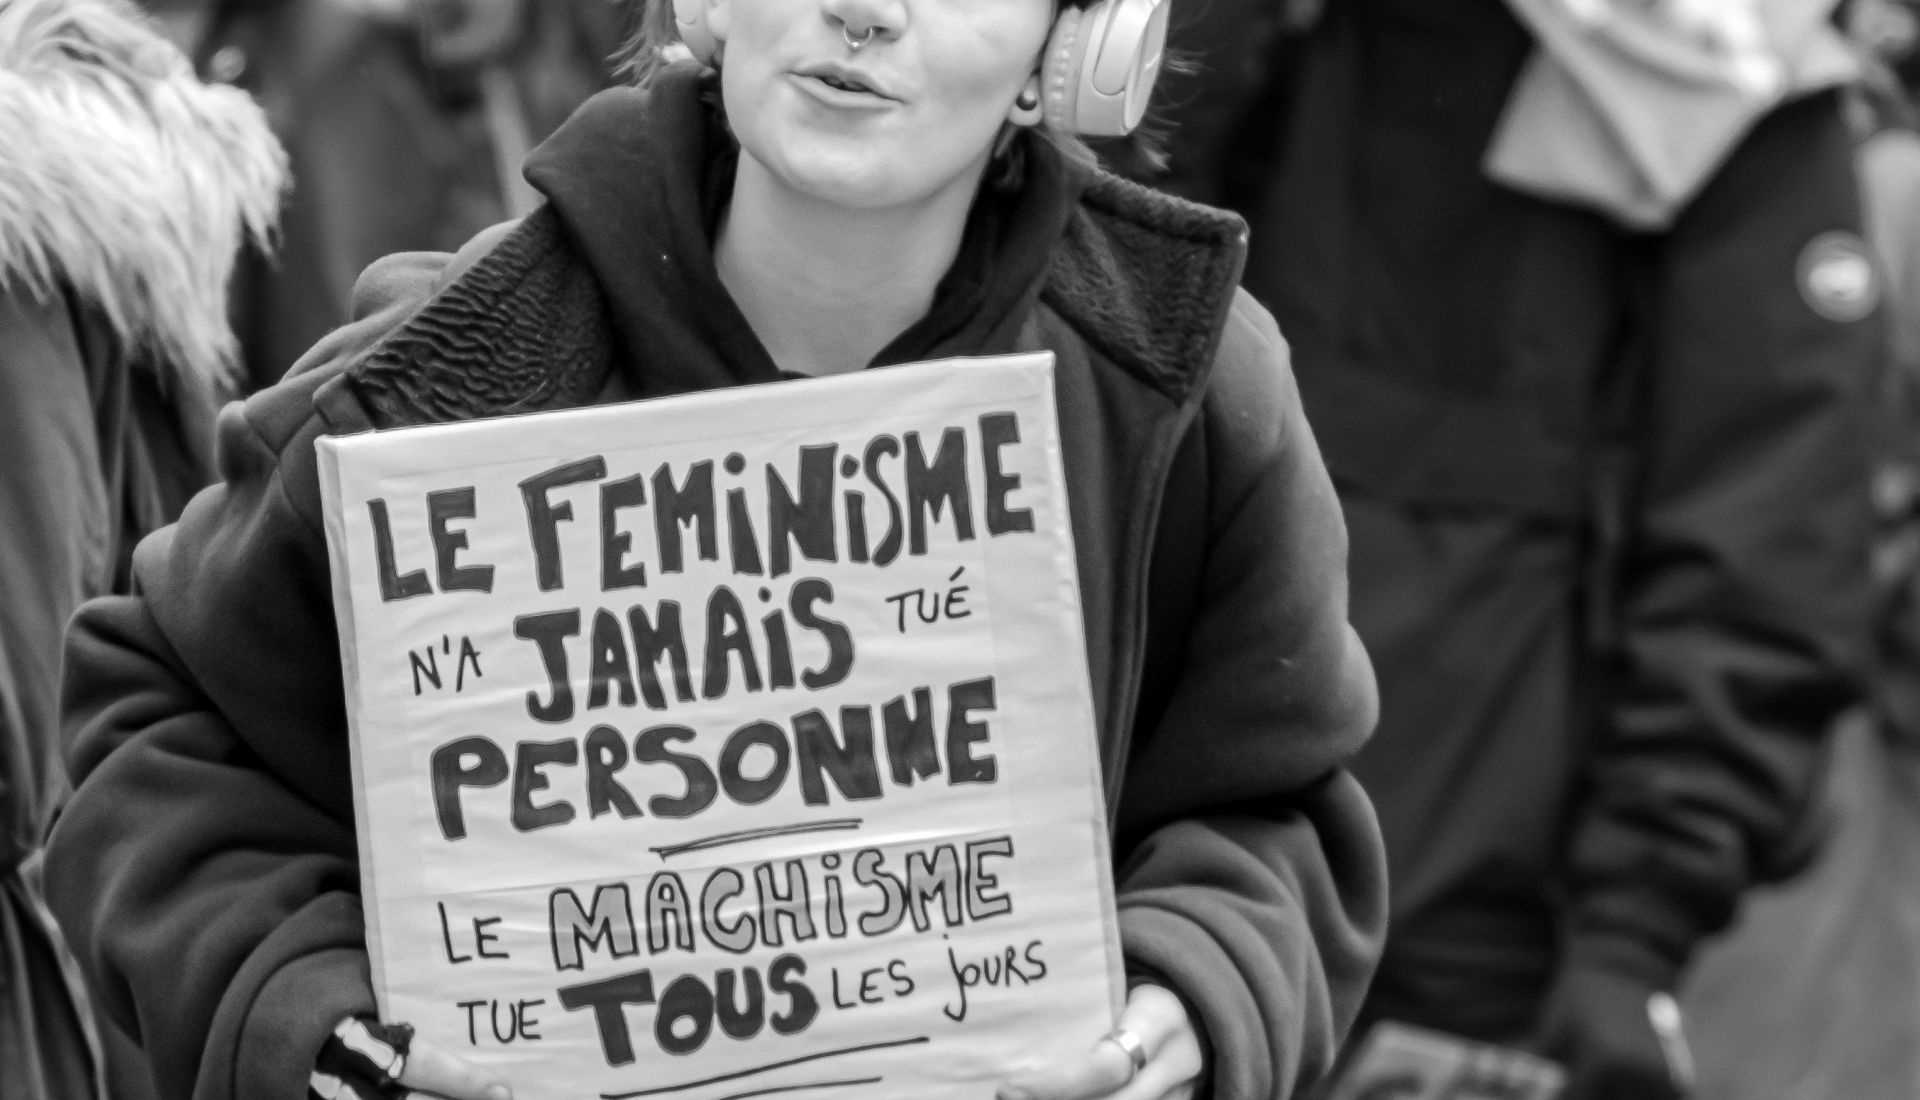 LE FEMiNiSME
N'A JAMAiS TUÉ
PERSONNE
LE MACHiSME
TUE TOUS LES jOURS